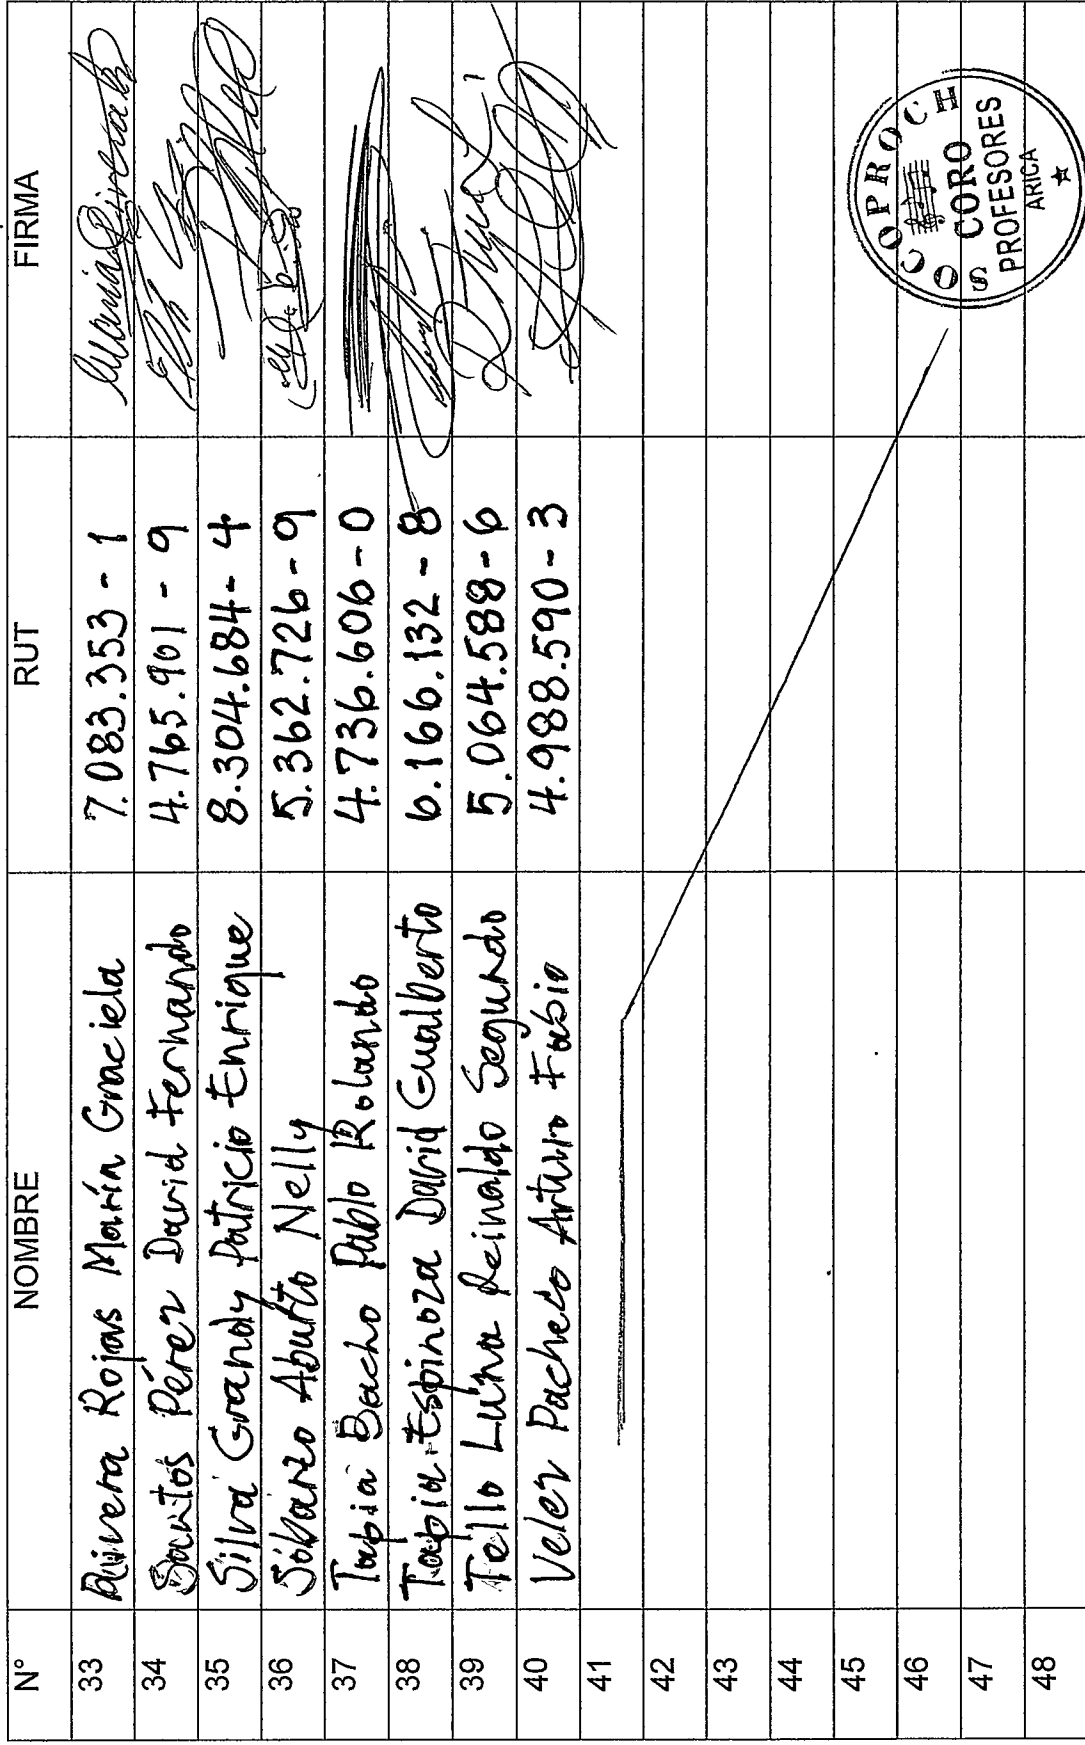 N° NOMBRE RUT FIRMA
33 Rivera Rojas Marín Graciela 7.083.353 - 1
34 Santos Pérez David Fernando 4.765.901 - 9
35 Silva Grandy Patricio Enrique 8.304.684 - 4
36 Sobarzo Aburto Nelly 5.362.726 - 9
37 Tapia Bacho Pablo Rolando 4.736.606 - 0
38 Tapia Espinoza David Gualberto 6.166.132 - 8
39 Tello Luna Reinaldo Segundo 5.064.588 - 6
40 Velez Pacheco Arturo Fabio 4.988.590 - 3
41
42
43
44
45
46
47
48
SOCOPROCH
CORO
PROFESORES
ARICA